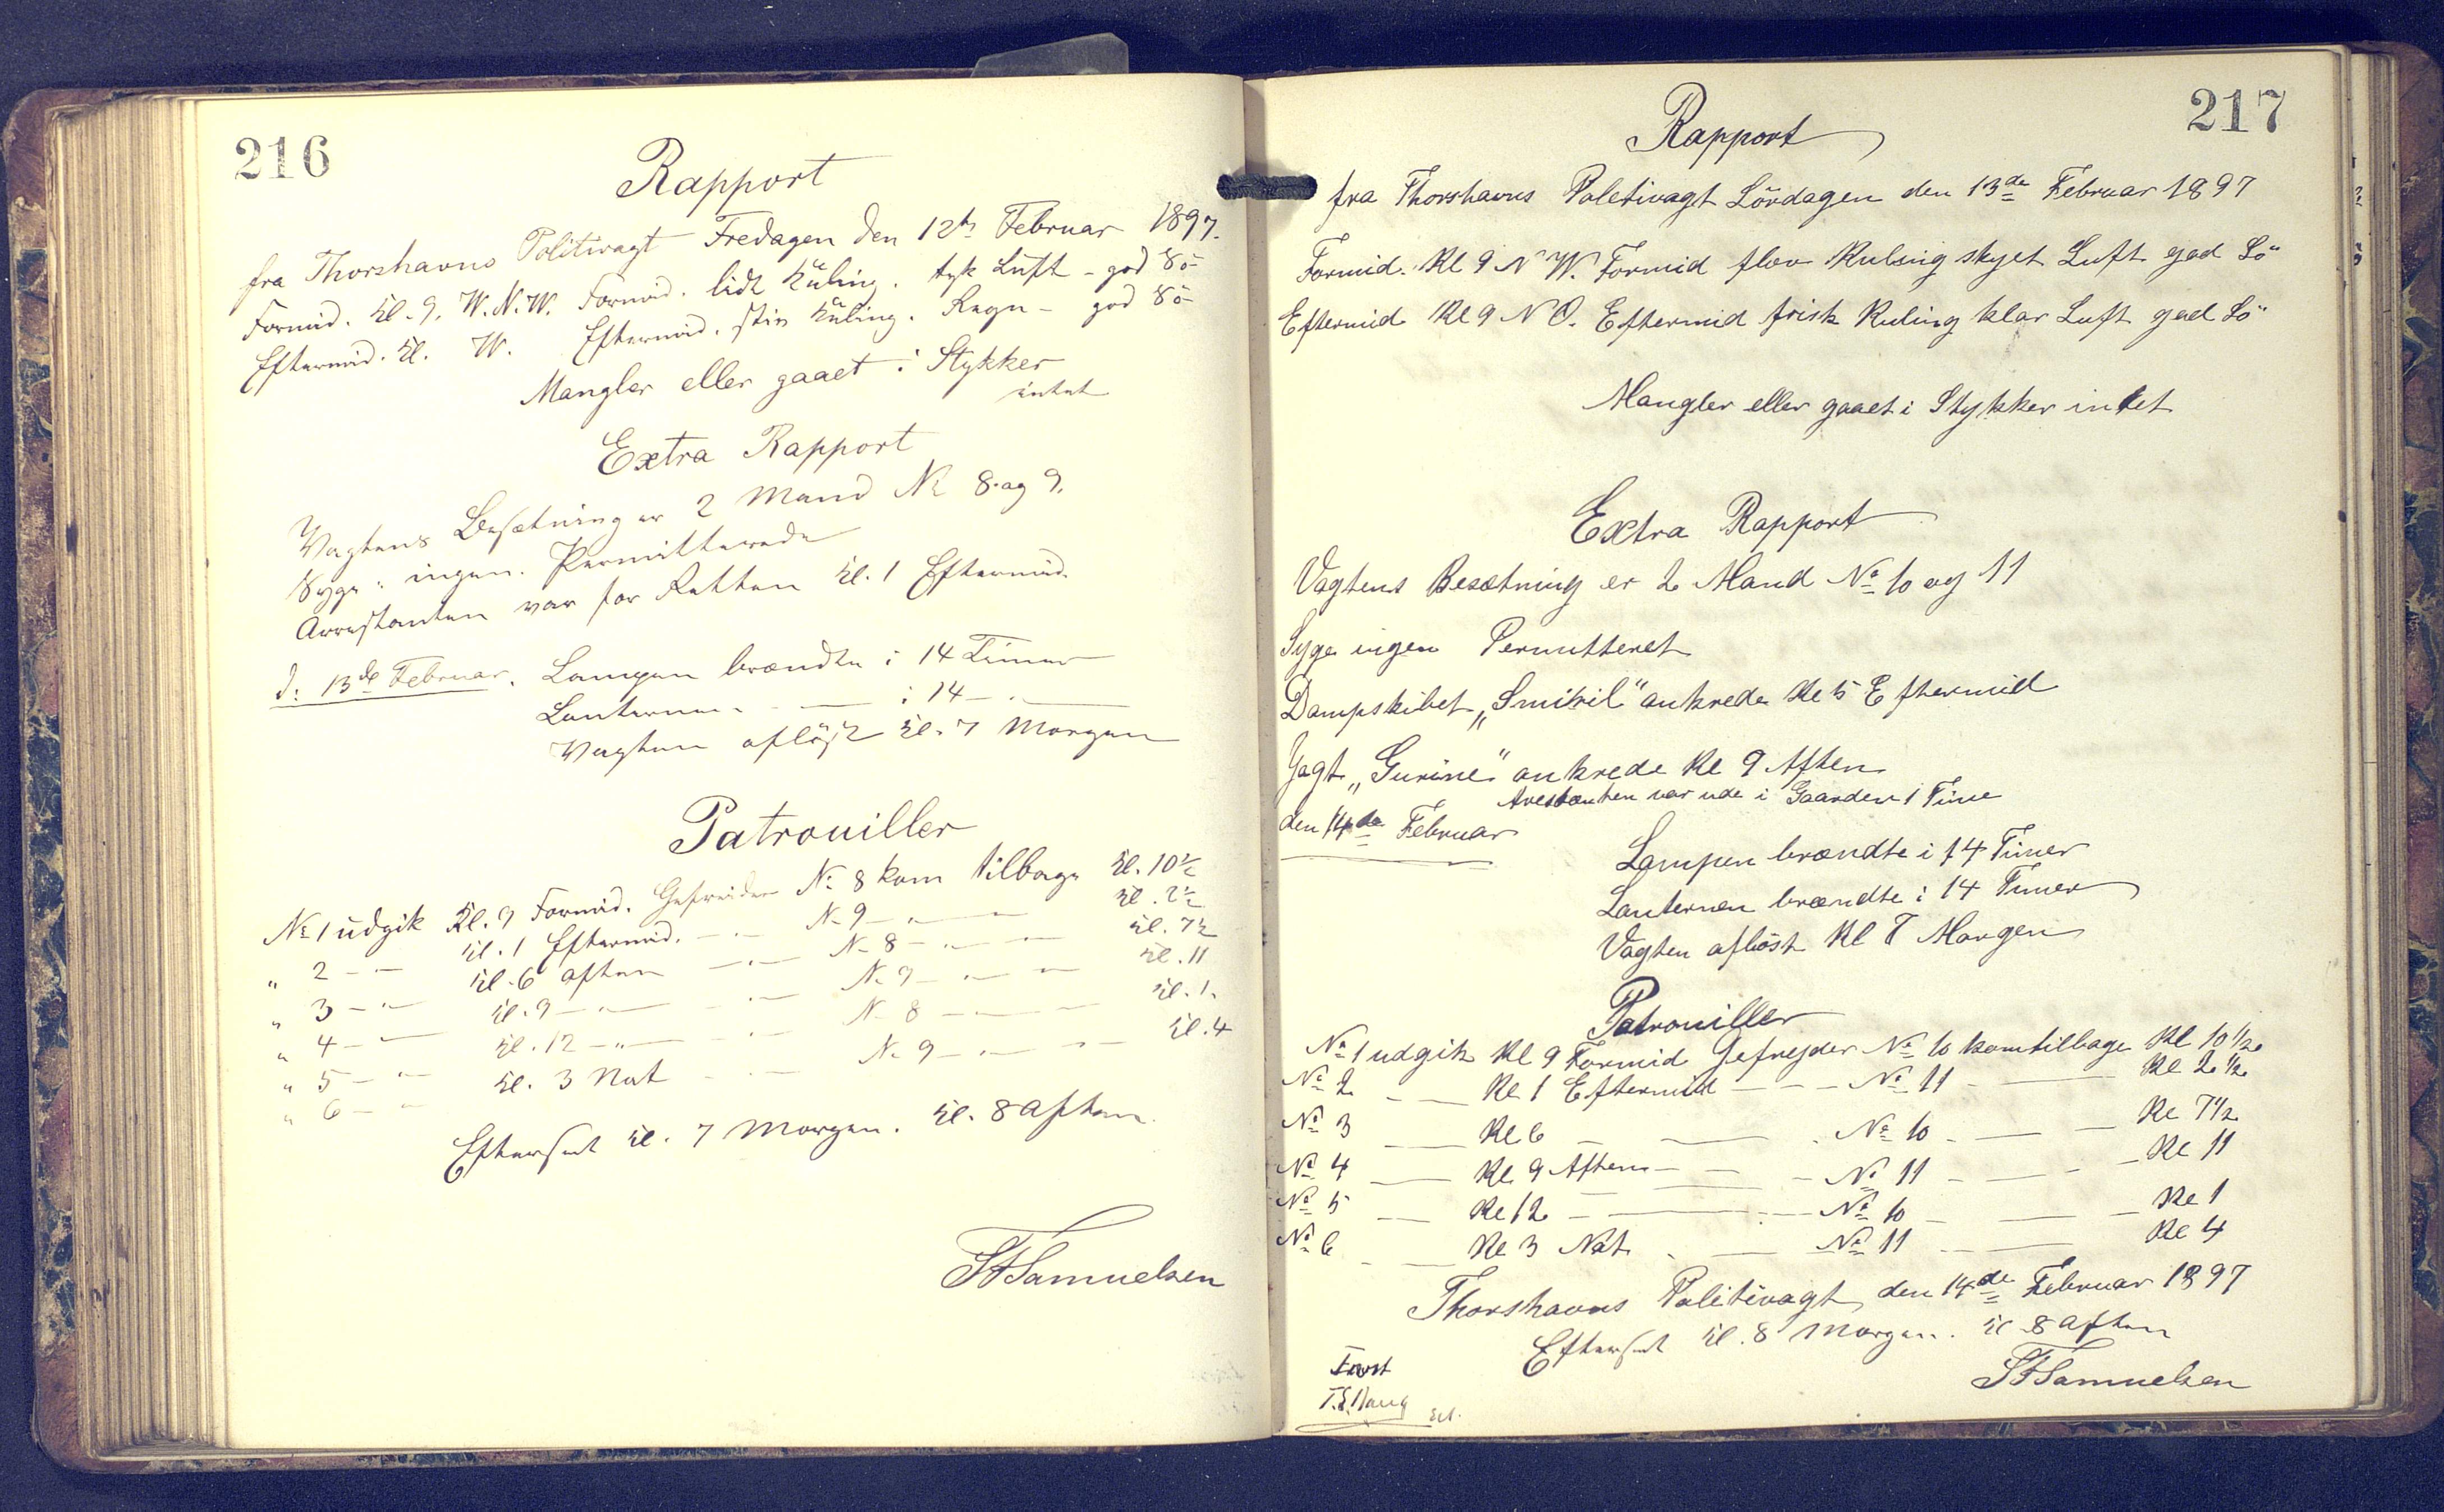 216
Rapport
fra Thorshavns Politivagt Fredagen den 12te Februar 1897.
Formid. Kl. 9. W.N.W. Formid. lidt Kuling. tyk Luft - god Sö
Eftermid. Kl. W. Eftermid. stiv Kuling. Regn - god Sö
Mangler eller gaaet i Stykker
intet
Extra Rapport
Vagtens Besætning er 2 Mand No 8. og 9.
Syge: ingen. Permitterede
Arrestanten var for Retten Kl. 1 Eftermid.
d: 13de Februar. Lampen brændte i 14 Timer
Lanternen - — i 14 — " —
Vagten aflöst Kl. 7 Morgen
Patrouiller
No 1 udgik Kl. 9 Formid. Gefreider No 8 kom tilbage Kl. 10½
" 2 - " - Kl. 1 Eftermid. - " - No 9 - " - Kl. 2½
" 3 - " - Kl. 6 Aften - " - No 8 - " - Kl. 7½
" 4 - " - Kl. 9 - " - - " - No 9 - " - Kl. 11
" 5 - " - Kl. 12 - " - - " - No 8 - " - Kl. 1.
" 6 - " - Kl. 3 Nat - " - No 9 - " - Kl. 4
Efterset Kl. 7 Morgen. Kl. 8 Aften.
Samuelsen
217
Rapport
fra Thorshavns Poletivagt Lördagen den 13de Februar 1897
Formid. Kl 9 N W. Formid flov Kuling skyet Luft god Sö
Eftermid Kl 9 N O. Eftermid frisk Kuling klar Luft god Sö
Mangler eller gaaet i Stykker intet
Extra Rapport
Vagtens Besætning er 2 Mand No 10 og 11
Syge ingen Permitteret
Dampskibet „Smiril" ankrede Kl 5 Eftermid
Jagt „Gurine" ankrede Kl 9 Aften
Arestanten var ude i Gaarden 1 Time
den 14de Februar
Lampen brændte i 14 Timer
Lanternen brændte i 14 Timer
Vagten aflöst Kl 8 Morgen
Patrouiller
No 1 udgik Kl 9 Formid Gefrejder No 10 kom tilbage Kl 10 ½
No 2 — Kl 1 Eftermid — No 11 — Kl 2 ½
No 3 — Kl 6 — No 10 — Kl 7½
No 4 — Kl 9 Aften — No 11 — Kl 11
No 5 — Kl 12 — No 10 — Kl 1
No 6 — Kl 3 Nat — No 11 — Kl 4
Thorshavns Politivagt den 14de Februar 1897
Efterset Kl. 8 Morgen. Kl 8 Aften
Samuelsen